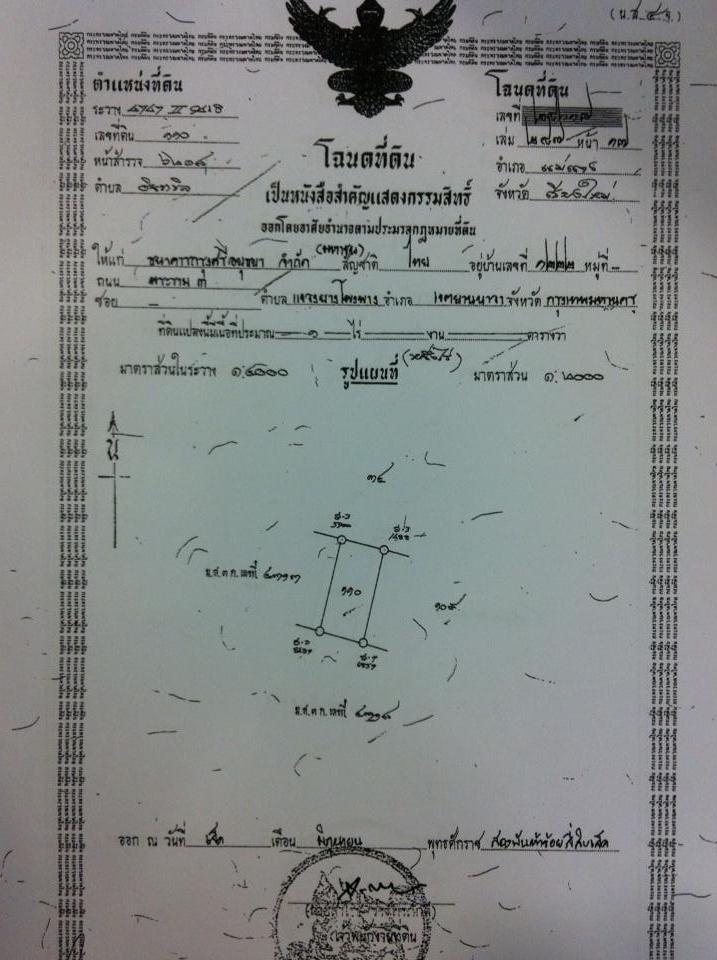 (น.ส.๔ จ.)
ตำแหน่งที่ดิน
ระวาง 4747 II 9418
เลขที่ดิน ๑๑๐
หน้าสำรวจ
ตำบล
โฉนดที่ดิน
เลขที่
เล่ม ๒๘๗ หน้า ๑๗
อำเภอ
จังหวัด เชียงใหม่
โฉนดที่ดิน
เป็นหนังสือสำคัญแสดงกรรมสิทธิ์
ออกโดยอาศัยอำนาจตามประมวลกฎหมายที่ดิน
ให้แก่ ธนาคารกรุงศรีอยุธยา จำกัด (มหาชน) สัญชาติ ไทย อยู่บ้านเลขที่ ๑๒๒๒ หมู่ที่ -
ถนน พระราม ๓
ซอย - ตำบล แขวงบางโพงพาง อำเภอ เขตยานนาวา จังหวัด กรุงเทพมหานคร
ที่ดินแปลงนี้มีเนื้อที่ประมาณ ๑ ไร่ งาน ตารางวา
มาตราส่วนในระวาง ๑:๔๐๐๐ รูปแผนที่ มาตราส่วน ๑:๒๐๐๐
น
๓๔
น.ส.๓ ก. เลขที่
๑๑๐
๑๐๕
น.ส.๓ ก. เลขที่
ออก ณ วันที่ เดือน มิถุนายน พุทธศักราช สองพันห้าร้อยสี่สิบเอ็ด
เจ้าพนักงานที่ดิน